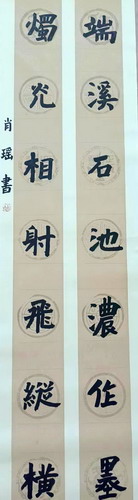 端溪石池濃作墨
燭光相射飛縱橫
肖瑶書